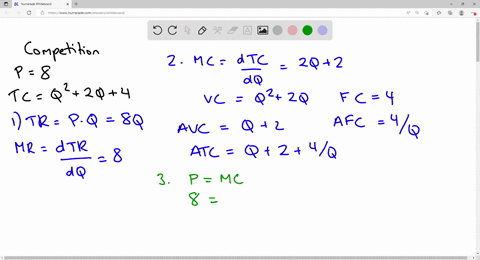 Competition
P = 8
TC = Q² + 2Q + 4
1) TR = P · Q = 8Q
MR = dTR/dQ = 8
2. MC = dTC/dQ = 2Q + 2
VC = Q² + 2Q FC = 4
AVC = Q + 2 AFC = 4/Q
ATC = Q + 2 + 4/Q
3. P = MC
8 =